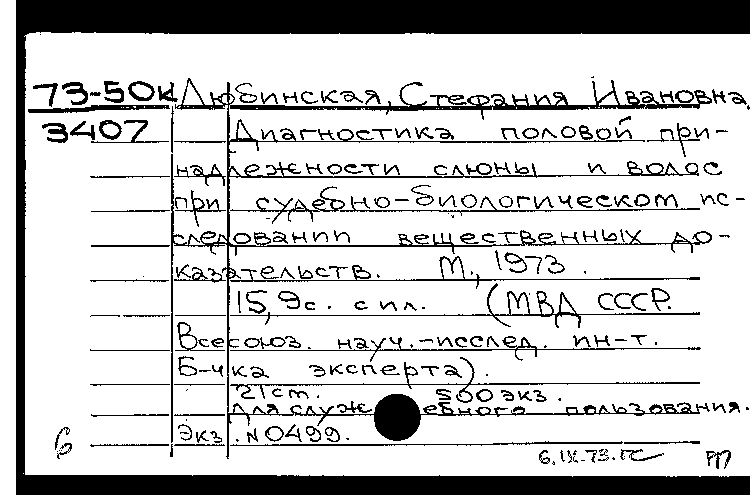 73-50к Любинская, Стефания Ивановна
3407 Диагностика половой при-
надлежности слюны и волос
при судебно-биологическом ис-
следовании вещественных до-
казательств. М., 1973.
15,9с. с ил. (МВД СССР.
Всесоюз. науч.-исслед. ин-т.
Б-чка эксперта).
21 см. 500 экз.
Для служебного пользования.
Экз. N0499.
6
6.IX-73.